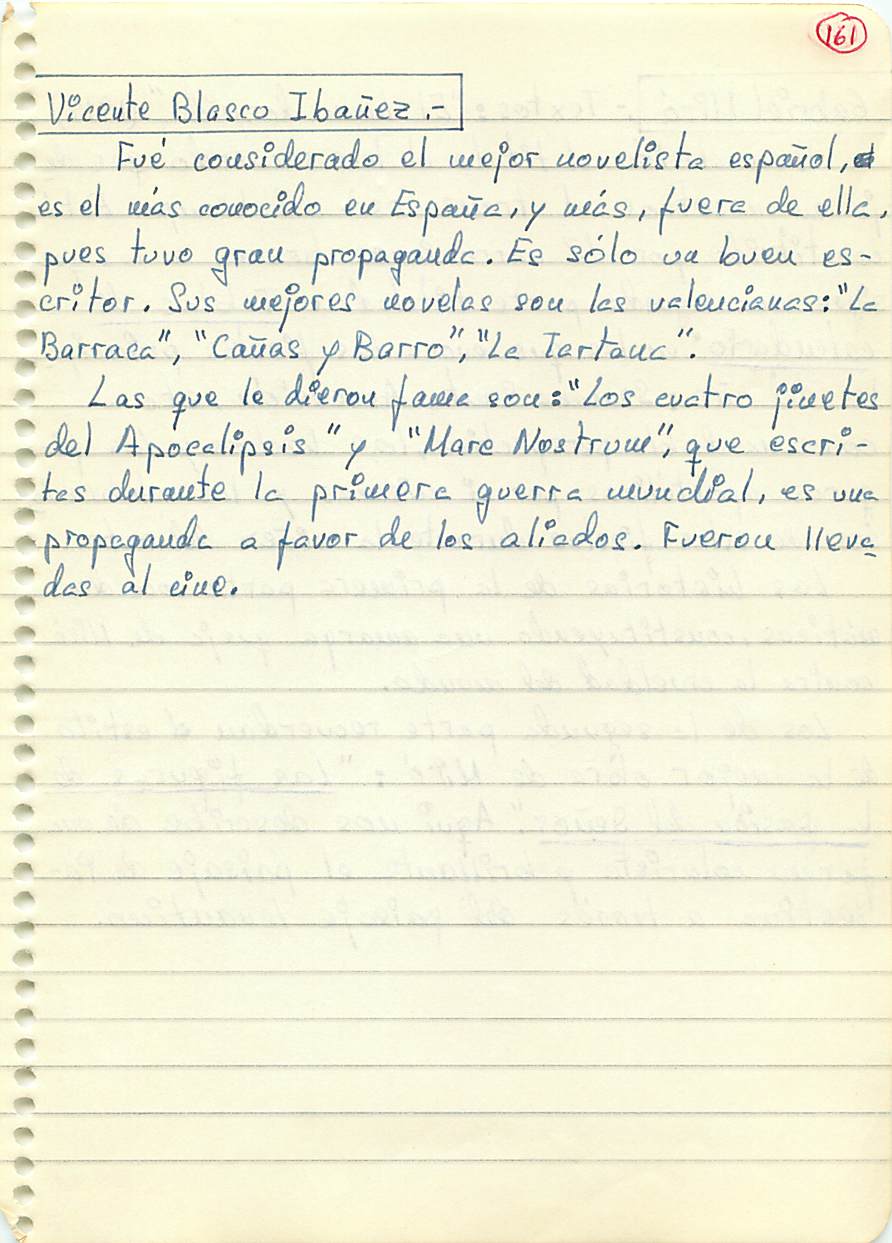 161
Vicente Blasco Ibañez.-
Fué considerado el mejor novelista español,
es el más conocido en España, y más, fuera de ella,
pues tuvo gran propaganda. Es sólo un buen es-
critor. Sus mejores novelas son las valencianas: "La
Barraca", "Cañas y Barro", "La Tartana".
Las que le dieron fama son: "Los cuatro jinetes
del Apocalipsis" y "Mare Nostrum", que escri-
tas durante la primera guerra mundial, es una
propaganda a favor de los aliados. Fueron lleva
das al cine.